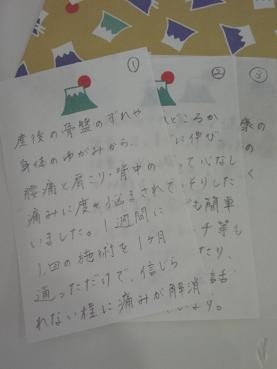 ①
産後の骨盤のずれや
身体のゆがみから、
腰痛と肩こり・背中の
痛みに度々悩まされて
いました。1週間に
1回の施術を1ヶ月
通っただけで、信じら
れない程に痛みが解消
②
ところか
に伸び
て心なし
りした
も簡単
チ等も
たり、
話
③
象の
の
く